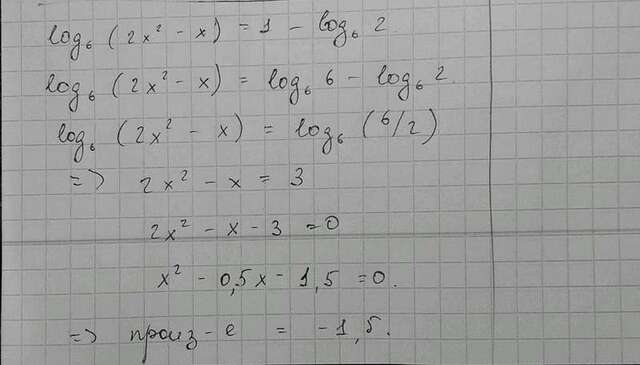 log₆ (2x² - x) = 1 - log₆ 2.
log₆ (2x² - x) = log₆ 6 - log₆ 2.
log₆ (2x² - x) = log₆ (6/2)
=> 2x² - x = 3
2x² - x - 3 = 0
x² - 0,5x - 1,5 = 0.
=> произ-е = -1,5.